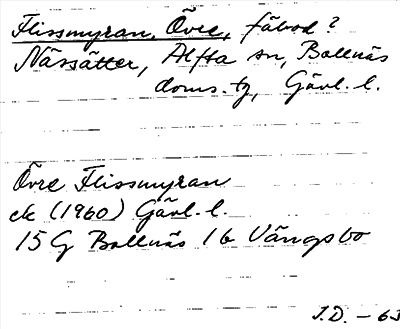 Flissmyran, Övre, fäbod?
Nässätter, Alfta sn, Bollnäs
doms. tg, Gävl. l.
Övre Flissmyran
ek (1960) Gävl. l.
15 G Bollnäs 1 b Vängsbo
J.D. - 63